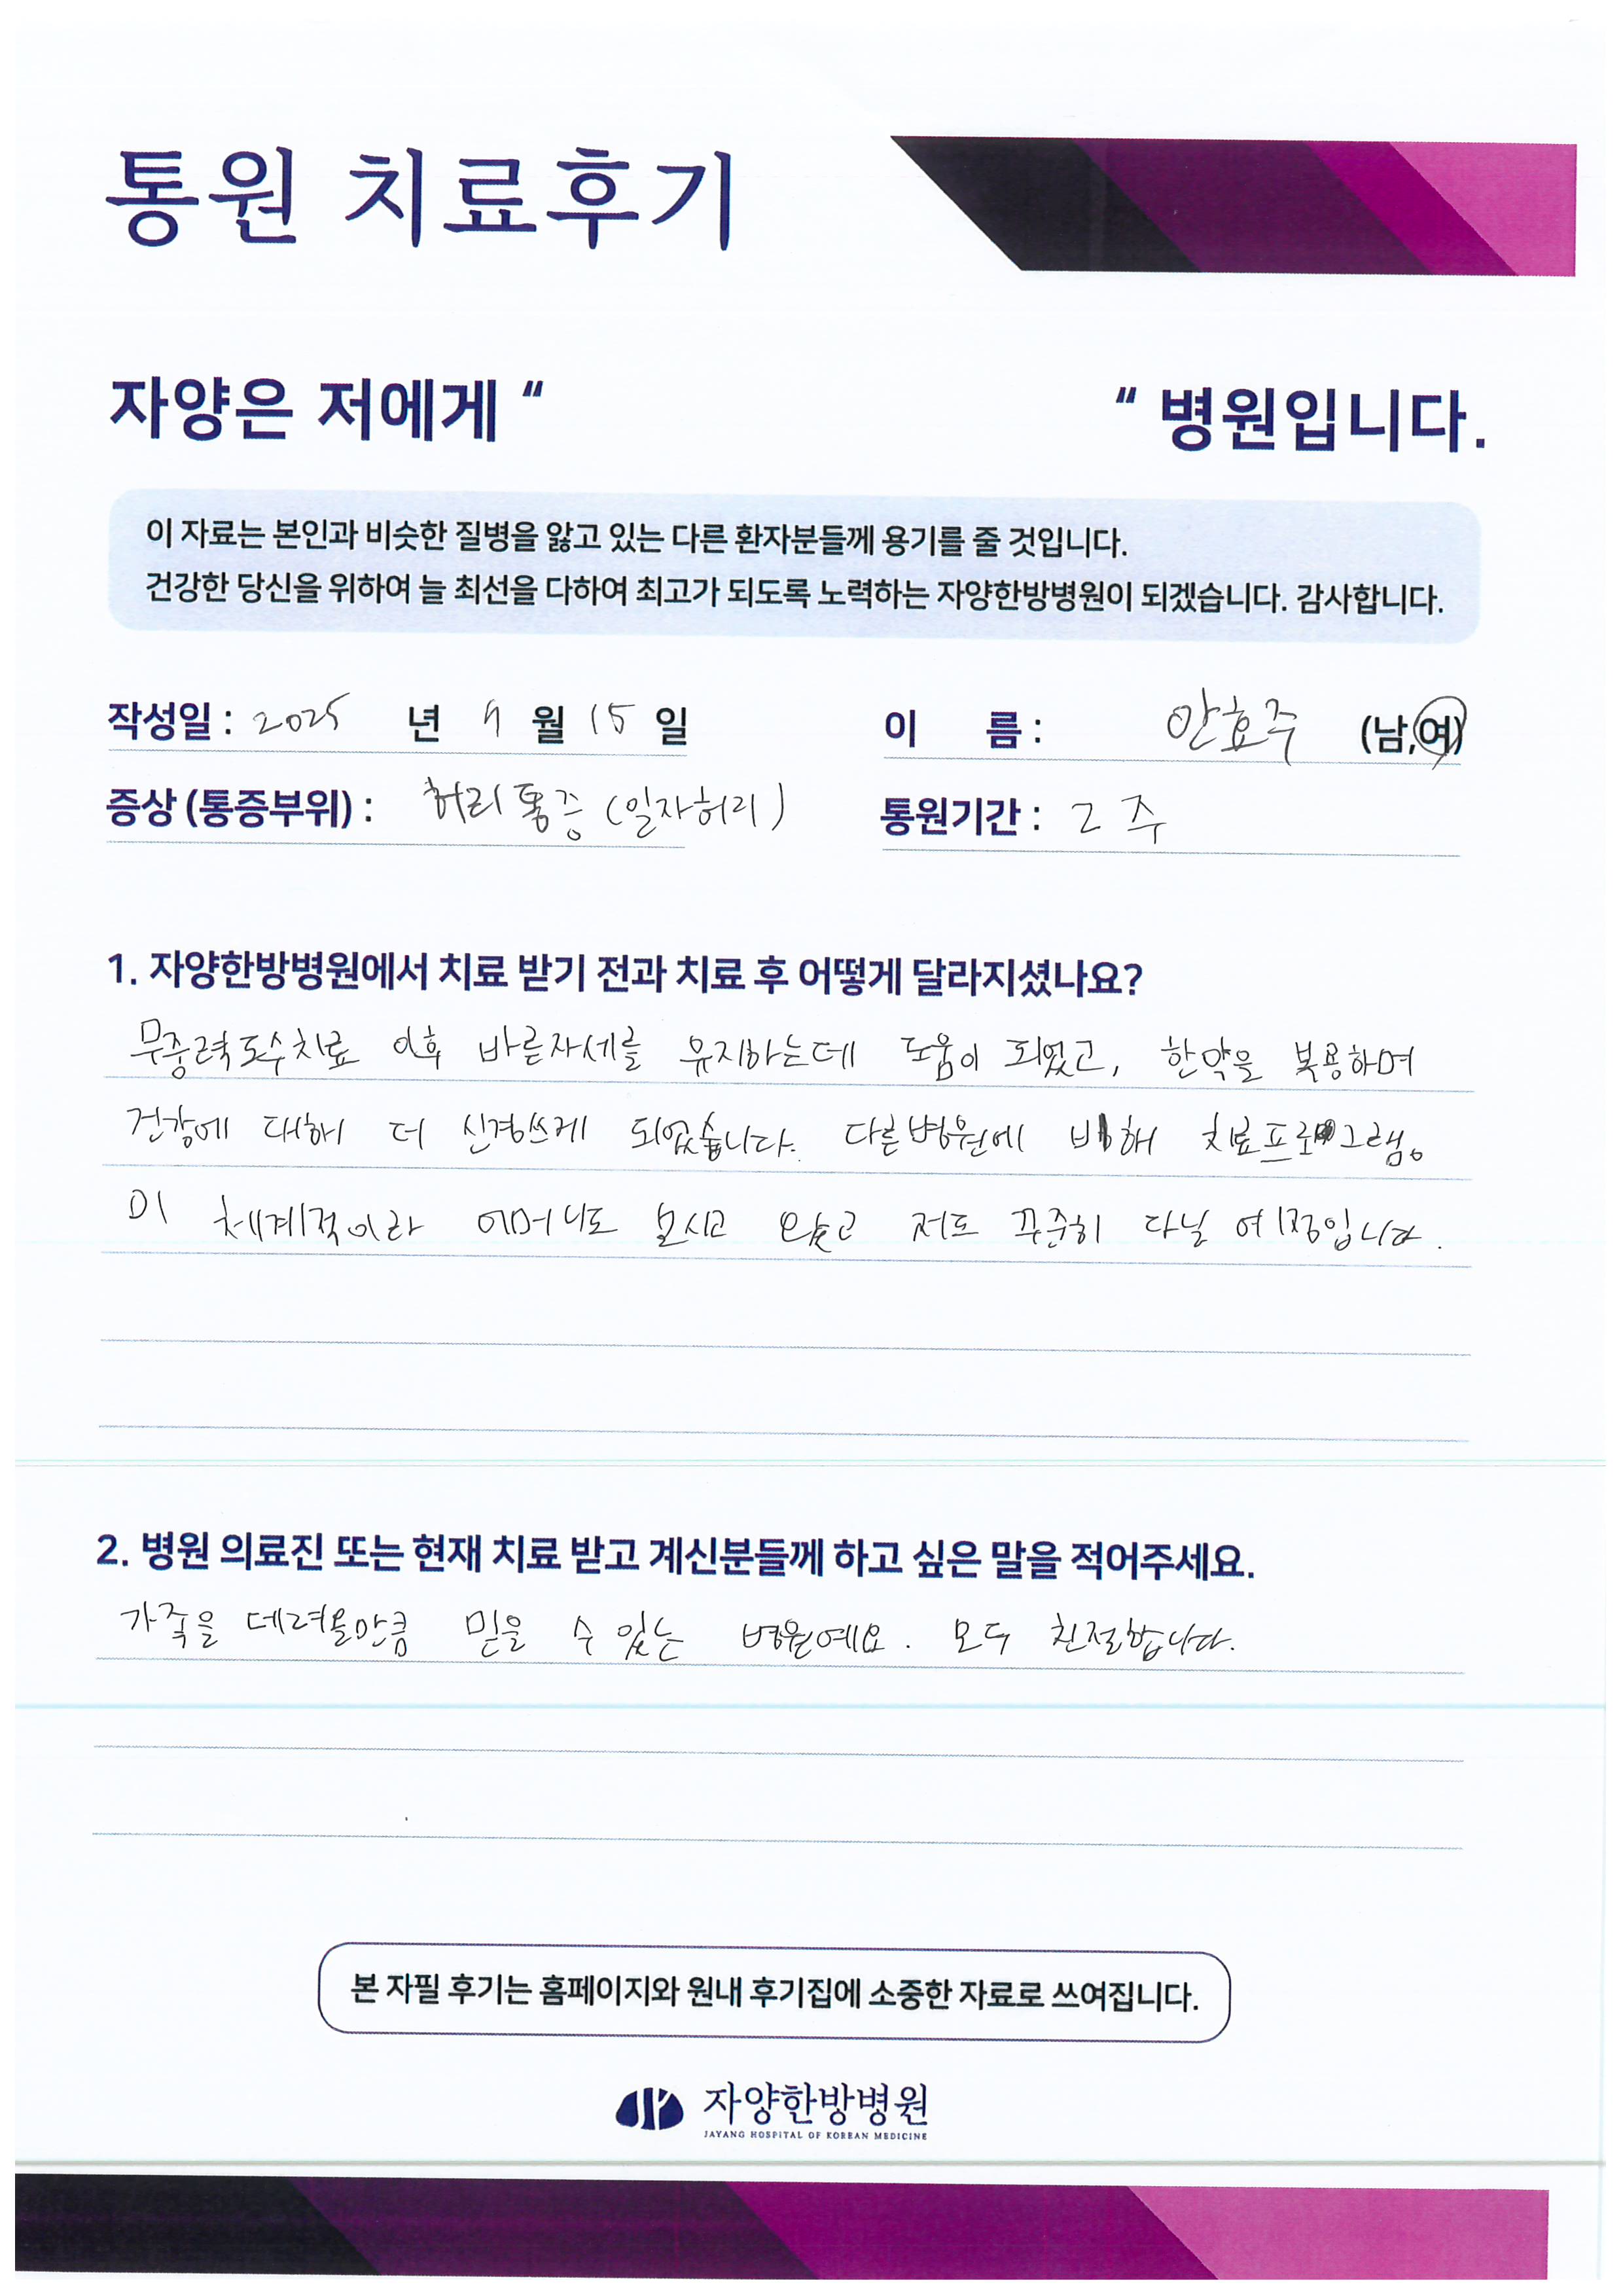 통원 치료후기
자양은 저에게 “ “ 병원입니다.
이 자료는 본인과 비슷한 질병을 앓고 있는 다른 환자분들께 용기를 줄 것입니다.
건강한 당신을 위하여 늘 최선을 다하여 최고가 되도록 노력하는 자양한방병원이 되겠습니다. 감사합니다.
작성일 : 2025 년 9 월 15 일 이 름 : 안효주 (남,여)
증상 (통증부위) : 허리통증 (일자허리) 통원기간 : 2주
1. 자양한방병원에서 치료 받기 전과 치료 후 어떻게 달라지셨나요?
무중력도수치료 이후 바른자세를 유지하는데 도움이 되었고, 한약을 복용하며
건강에 대해 더 신경쓰게 되었습니다. 다른병원에 비해 치료프로그램
이 체계적이라 어머니도 모시고 왔고 저도 꾸준히 다닐 예정입니다.
2. 병원 의료진 또는 현재 치료 받고 계신분들께 하고 싶은 말을 적어주세요.
가족을 데려올만큼 믿을 수 있는 병원예요. 모두 친절합니다.
본 자필 후기는 홈페이지와 원내 후기집에 소중한 자료로 쓰여집니다.
자양한방병원
JAYANG HOSPITAL OF KOREAN MEDICINE